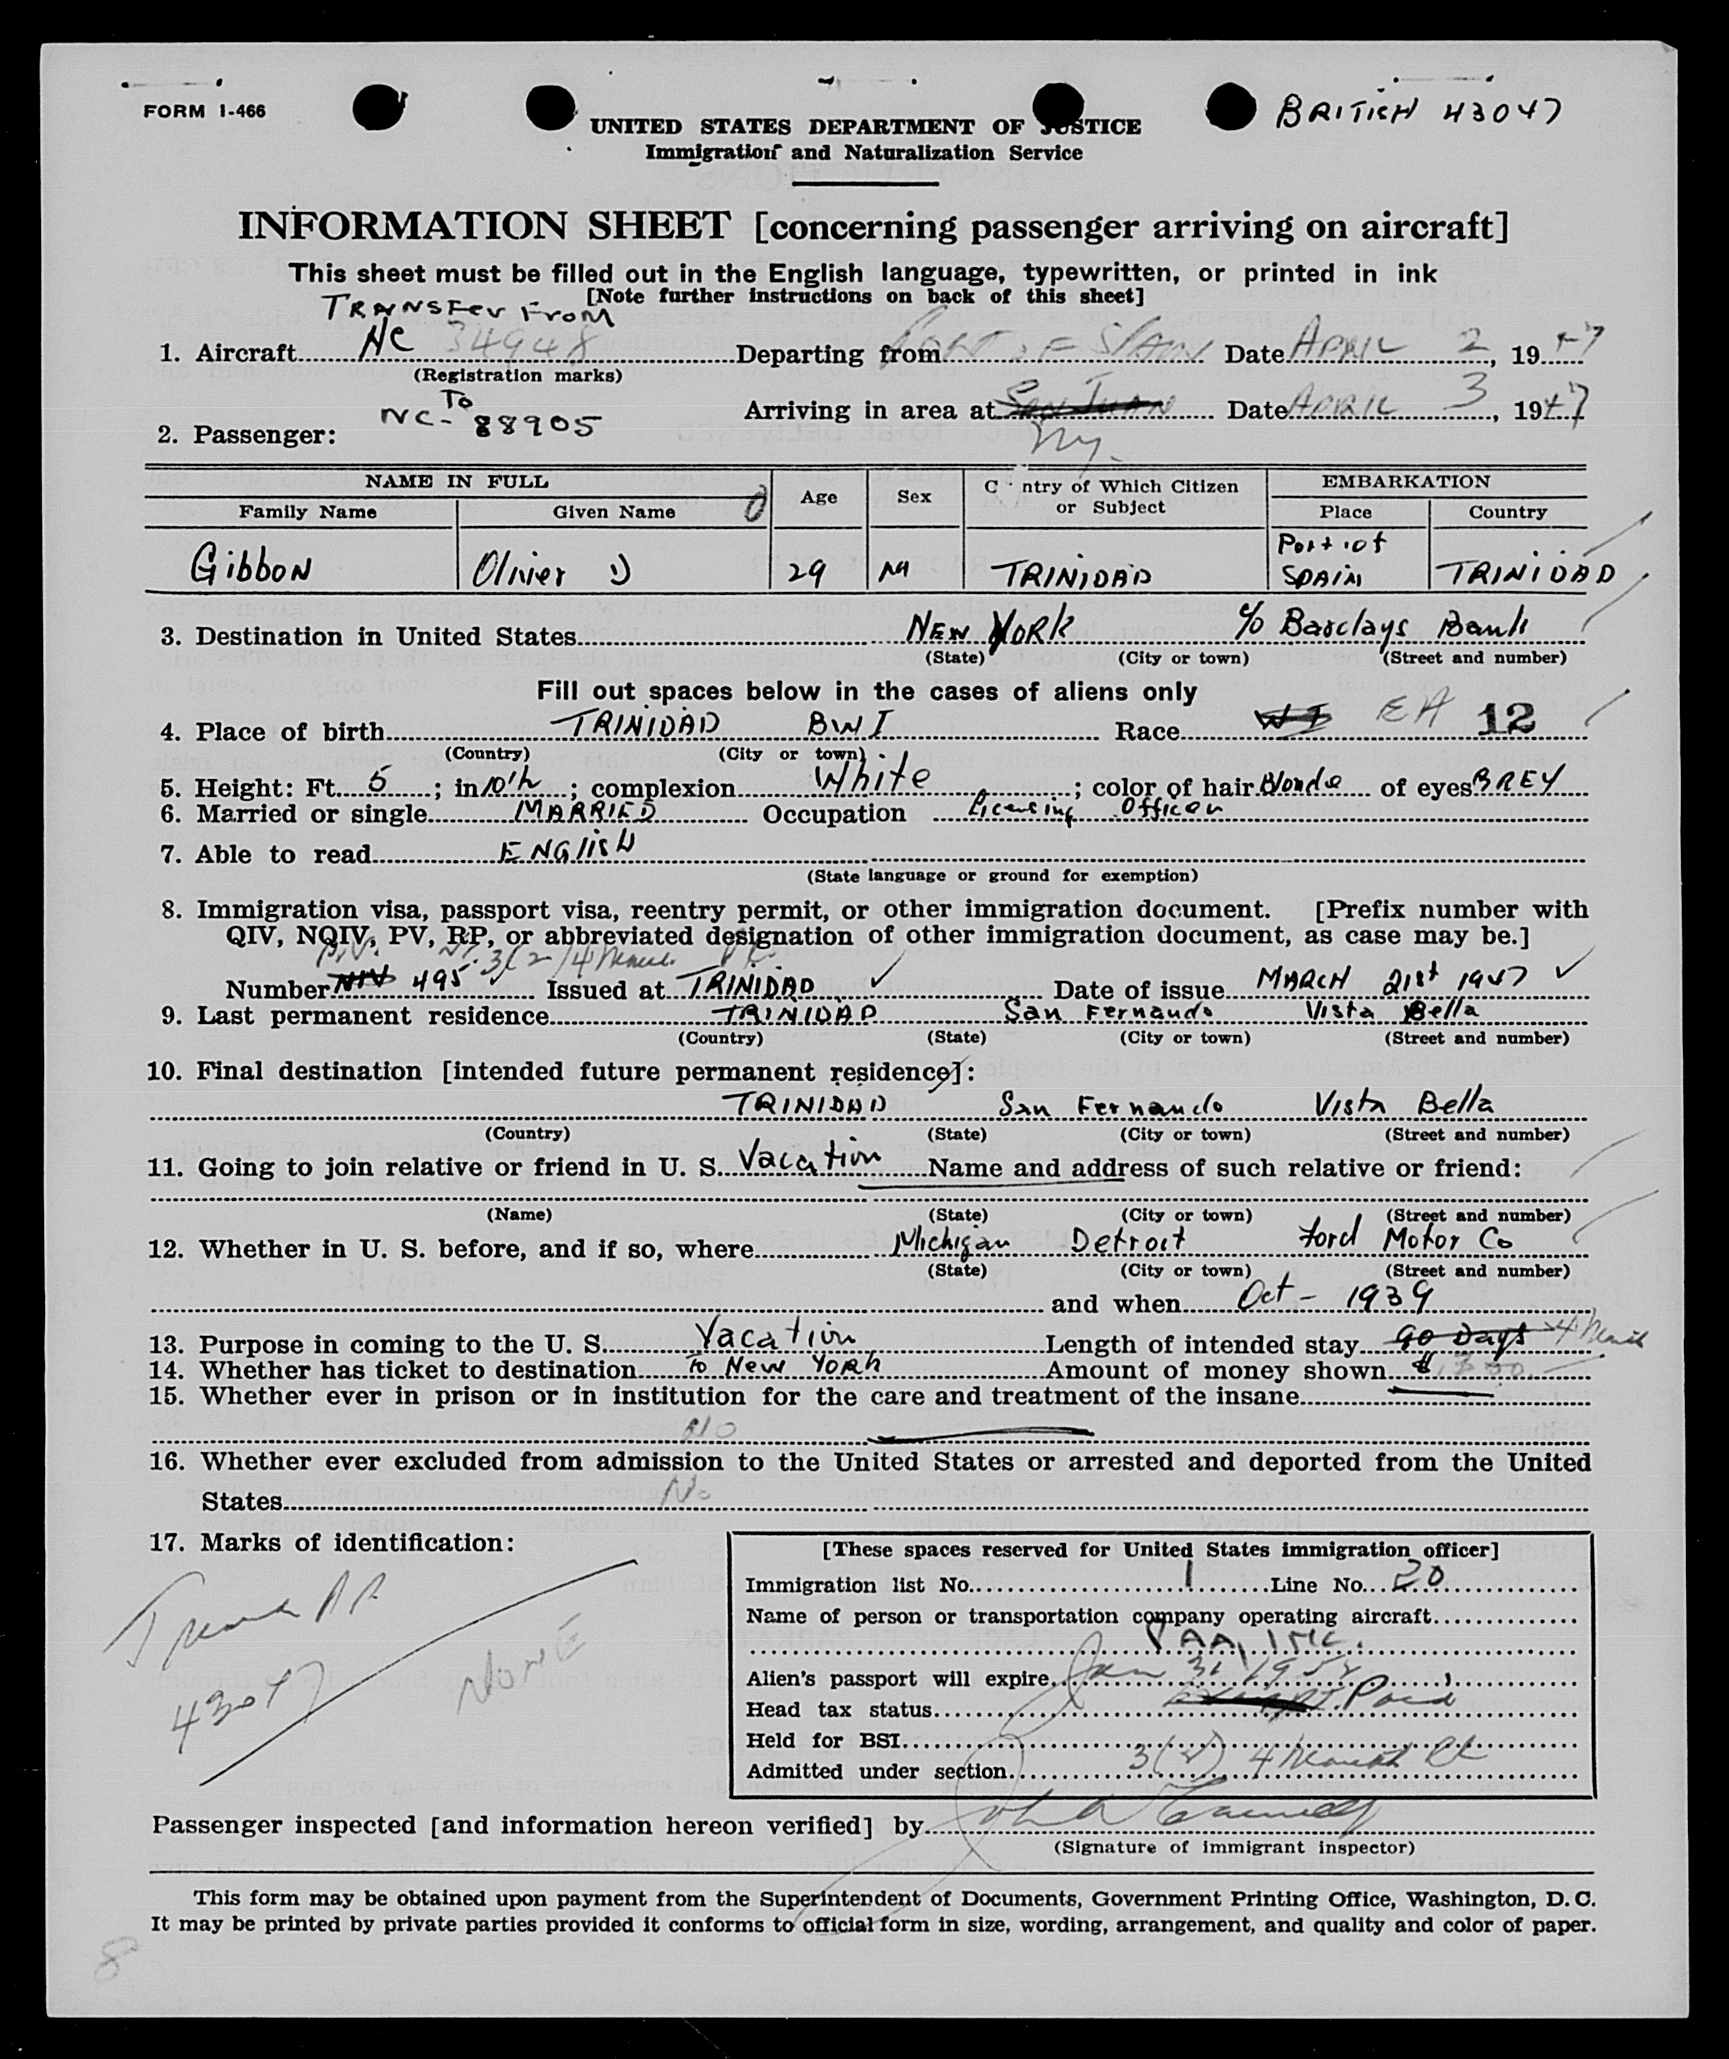 FORM I-466
BRITISH 43047
UNITED STATES DEPARTMENT OF JUSTICE
Immigration and Naturalization Service
INFORMATION SHEET [concerning passenger arriving on aircraft]
This sheet must be filled out in the English language, typewritten, or printed in ink
[Note further instructions on back of this sheet]
TRANSFER FROM
1. Aircraft NC 34948 Departing from PORT OF SPAIN Date APRIL 2, 1947
(Registration marks)
To
NC-88905 Arriving in area at San Juan Date APRIL 3, 1947
2. Passenger: NY.
NAME IN FULL Age Sex Country of Which Citizen or Subject EMBARKATION
Family Name Given Name Place Country
Gibbon Olivier D 29 M TRINIDAD Port of SPAIN TRINIDAD
3. Destination in United States NEW YORK c/o Barclays Bank
(State) (City or town) (Street and number)
Fill out spaces below in the cases of aliens only
4. Place of birth TRINIDAD BWI Race WI EA 12
(Country) (City or town)
5. Height: Ft. 5; in 10½; complexion White; color of hair Blonde of eyes GREY
6. Married or single MARRIED Occupation Licensing Officer
7. Able to read ENGLISH
(State language or ground for exemption)
8. Immigration visa, passport visa, reentry permit, or other immigration document. [Prefix number with
QIV, NQIV, PV, RP, or abbreviated designation of other immigration document, as case may be.]
P.V. 3(2)
Number NIV 495 Issued at TRINIDAD Date of issue MARCH 21st 1947
9. Last permanent residence TRINIDAD San Fernando Vista Bella
(Country) (State) (City or town) (Street and number)
10. Final destination [intended future permanent residence]:
TRINIDAD San Fernando Vista Bella
(Country) (State) (City or town) (Street and number)
11. Going to join relative or friend in U. S. Vacation Name and address of such relative or friend:
(Name) (State) (City or town) (Street and number)
12. Whether in U. S. before, and if so, where Michigan Detroit Ford Motor Co
(State) (City or town) (Street and number)
and when Oct - 1939
13. Purpose in coming to the U. S. Vacation Length of intended stay 90 Days 4
14. Whether has ticket to destination To New York Amount of money shown
15. Whether ever in prison or in institution for the care and treatment of the insane
NO
16. Whether ever excluded from admission to the United States or arrested and deported from the United
States No
17. Marks of identification:
43047
NONE
[These spaces reserved for United States immigration officer]
Immigration list No. 1 Line No. 20
Name of person or transportation company operating aircraft
PAA, INC.
Alien's passport will expire Jan 31 1952
Head tax status Paid
Held for BSI
Admitted under section 3(2) 4
Passenger inspected [and information hereon verified] by
(Signature of immigrant inspector)
This form may be obtained upon payment from the Superintendent of Documents, Government Printing Office, Washington, D. C.
It may be printed by private parties provided it conforms to official form in size, wording, arrangement, and quality and color of paper.
8